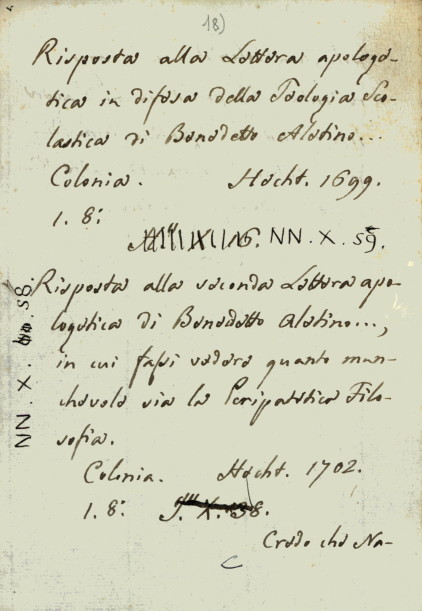 18)
Risposta alla Lettera apologe-
tica in difesa della Teologia Sco-
lastica di Benedetto Aletino...
Colonia. Hecht. 1699.
1. 8:
NN. X. 59.
Risposta alla seconda Lettera apo-
logetica di Benedetto Aletino...,
in cui fassi vedere quanto man-
chevole sia la Peripatetica Filo-
sofia.
Colonia. Hecht. 1702.
1. 8:
Credo che Na-
NN. X. 58.